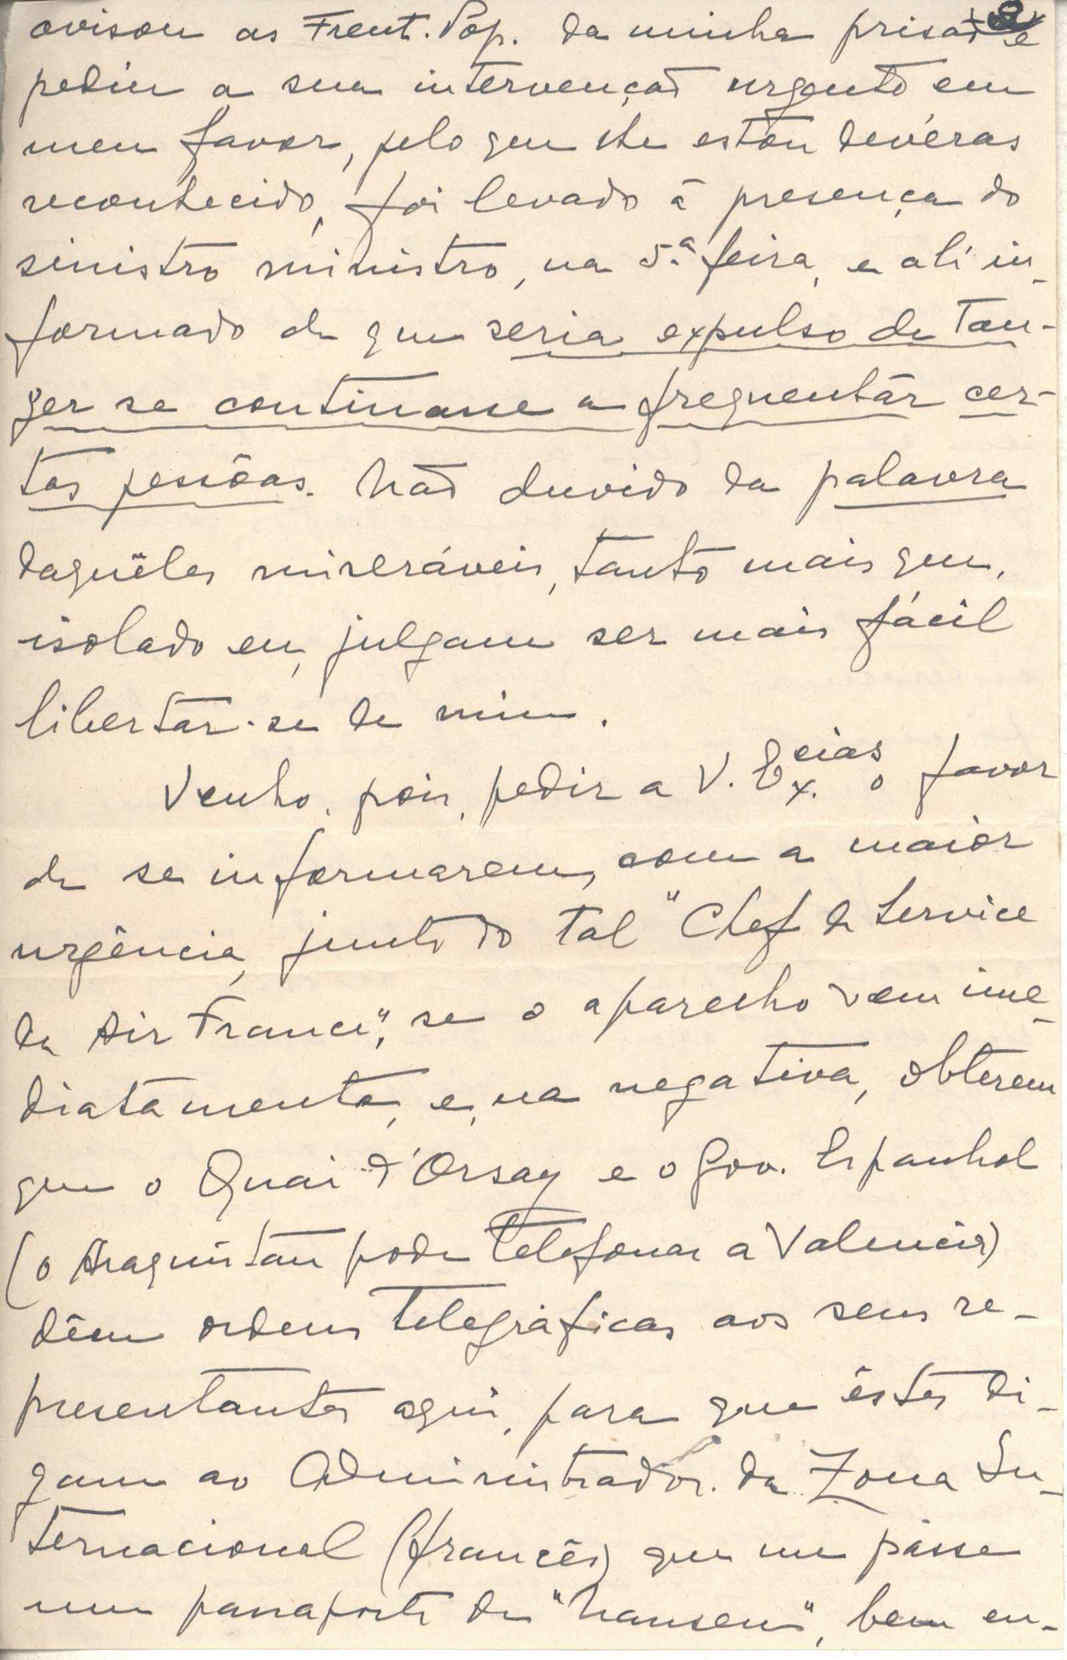 avisou as Frent. Pop. da minha prisão e
pediu a sua intervenção urgente em
meu favor, pelo que lhe estou devéras
reconhecido, foi levado á presença do
sinistro ministro, na 5.ª feira, e alí in-
formado de que seria expulso de Tan-
ger se continuasse a frequentár cer-
tas pessôas. Não duvido da palavra
daquêles miseráveis, tanto mais que,
isolado eu, julgam ser mais fácil
libertar-se de mim.
Venho, pois, pedir a V. Ex.cias o favor
de se informarem, com a maior
urgência, junto do tal "Chef de Service
da Air France", se o aparelho vem ime-
diatamente, e, na negativa, obterem
que o Quai d'Orsay e o Gov. Espanhol
(o Araquistan pode telefonar a Valencia)
dêm ordens telegráficas aos seus re-
presentantes aqui, para que êstes di-
gam ao Administrador da Zona In-
ternacional (francês) que me passe
um passaporte de "Nansen", bem en-